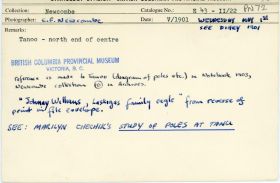 Collection: Newcombe Catalogue No.: PN 72
Photographer: C.F. Newcombe Date: V/1901 WEDNESDAY MAY 1st
Remarks: SEE DIARY 1901
Tanoo - north end of centre
BRITISH COLUMBIA PROVINCIAL MUSEUM
VICTORIA, B.C.
reference is made to Tanoo (diagram of poles etc.) in Notebook 1903,
Newcombe collections in Archives.
"Johnny Williams, family eagle" from reverse of
print in file envelope.
SEE: MARILYN CHECHIK'S STUDY OF POLES AT TANU